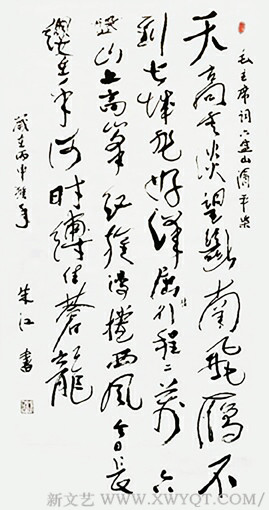 毛主席词六盘山清平乐
天高云淡望断南飛雁不
到长城非好漢屈指行程二萬六
盤山上高峰红旗漫捲西風今日长
缨在手何时缚住蒼龍
歲在丙申
朱江書
新文艺 WWW.XWYQT.COM